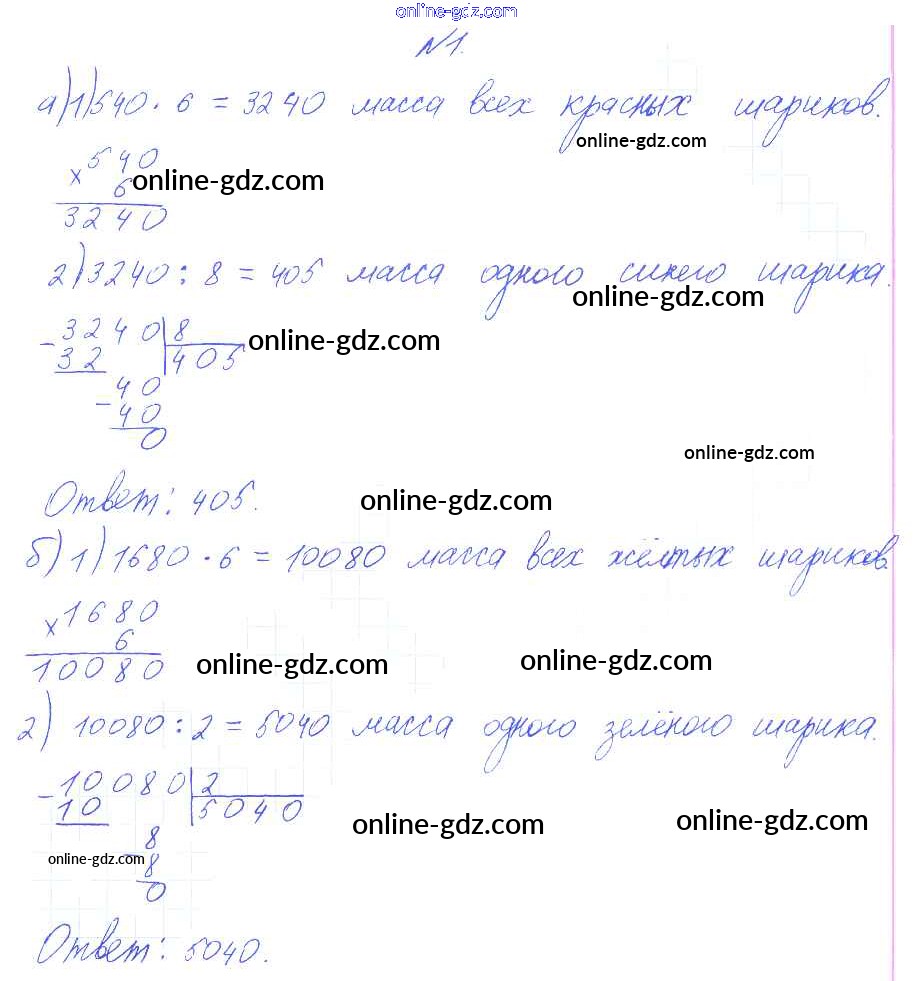 online-gdz.com
№1.
а) 1) 540 · 6 = 3240 масса всех красных шариков.
online-gdz.com
× 540
6 online-gdz.com
3240
2) 3240 : 8 = 405 масса одного синего шарика.
online-gdz.com
- 3240 | 8 online-gdz.com
32 | 405
- 40
40
0
online-gdz.com
Ответ: 405. online-gdz.com
б) 1) 1680 · 6 = 10080 масса всех жёлтых шариков.
× 1680
6
10080 online-gdz.com online-gdz.com
2) 10080 : 2 = 5040 масса одного зелёного шарика.
- 10080 | 2
10 | 5040
online-gdz.com online-gdz.com
8
online-gdz.com - 8
0
Ответ: 5040.